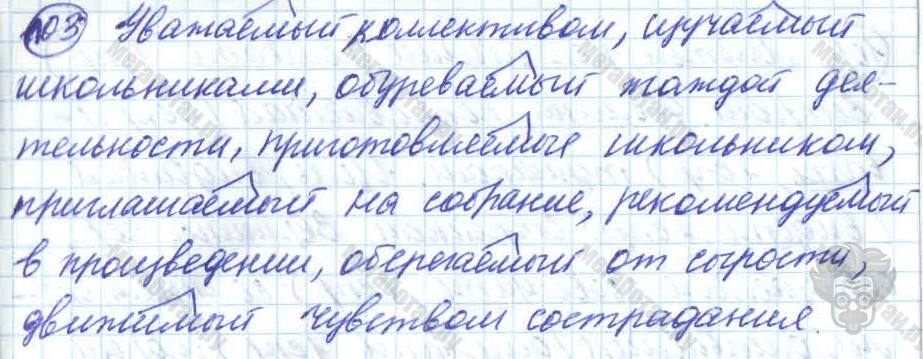 103 Уважаемый коллективом, изучаемый
школьниками, обуреваемый жаждой дея-
тельности, приготовляемые школьником,
приглашаемый на собрание, рекомендуемый
в произведении, оберегаемый от сырости,
движимый чувством сострадания.